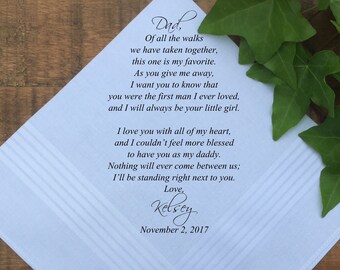 Dad,
Of all the walks
we have taken together,
this one is my favorite.
As you give me away,
I want you to know that
you were the first man I ever loved,
and I will always be your little girl.
I love you with all of my heart,
and I couldn't feel more blessed
to have you as my daddy.
Nothing will ever come between us;
I'll be standing right next to you.
Love,
Kelsey
November 2, 2017